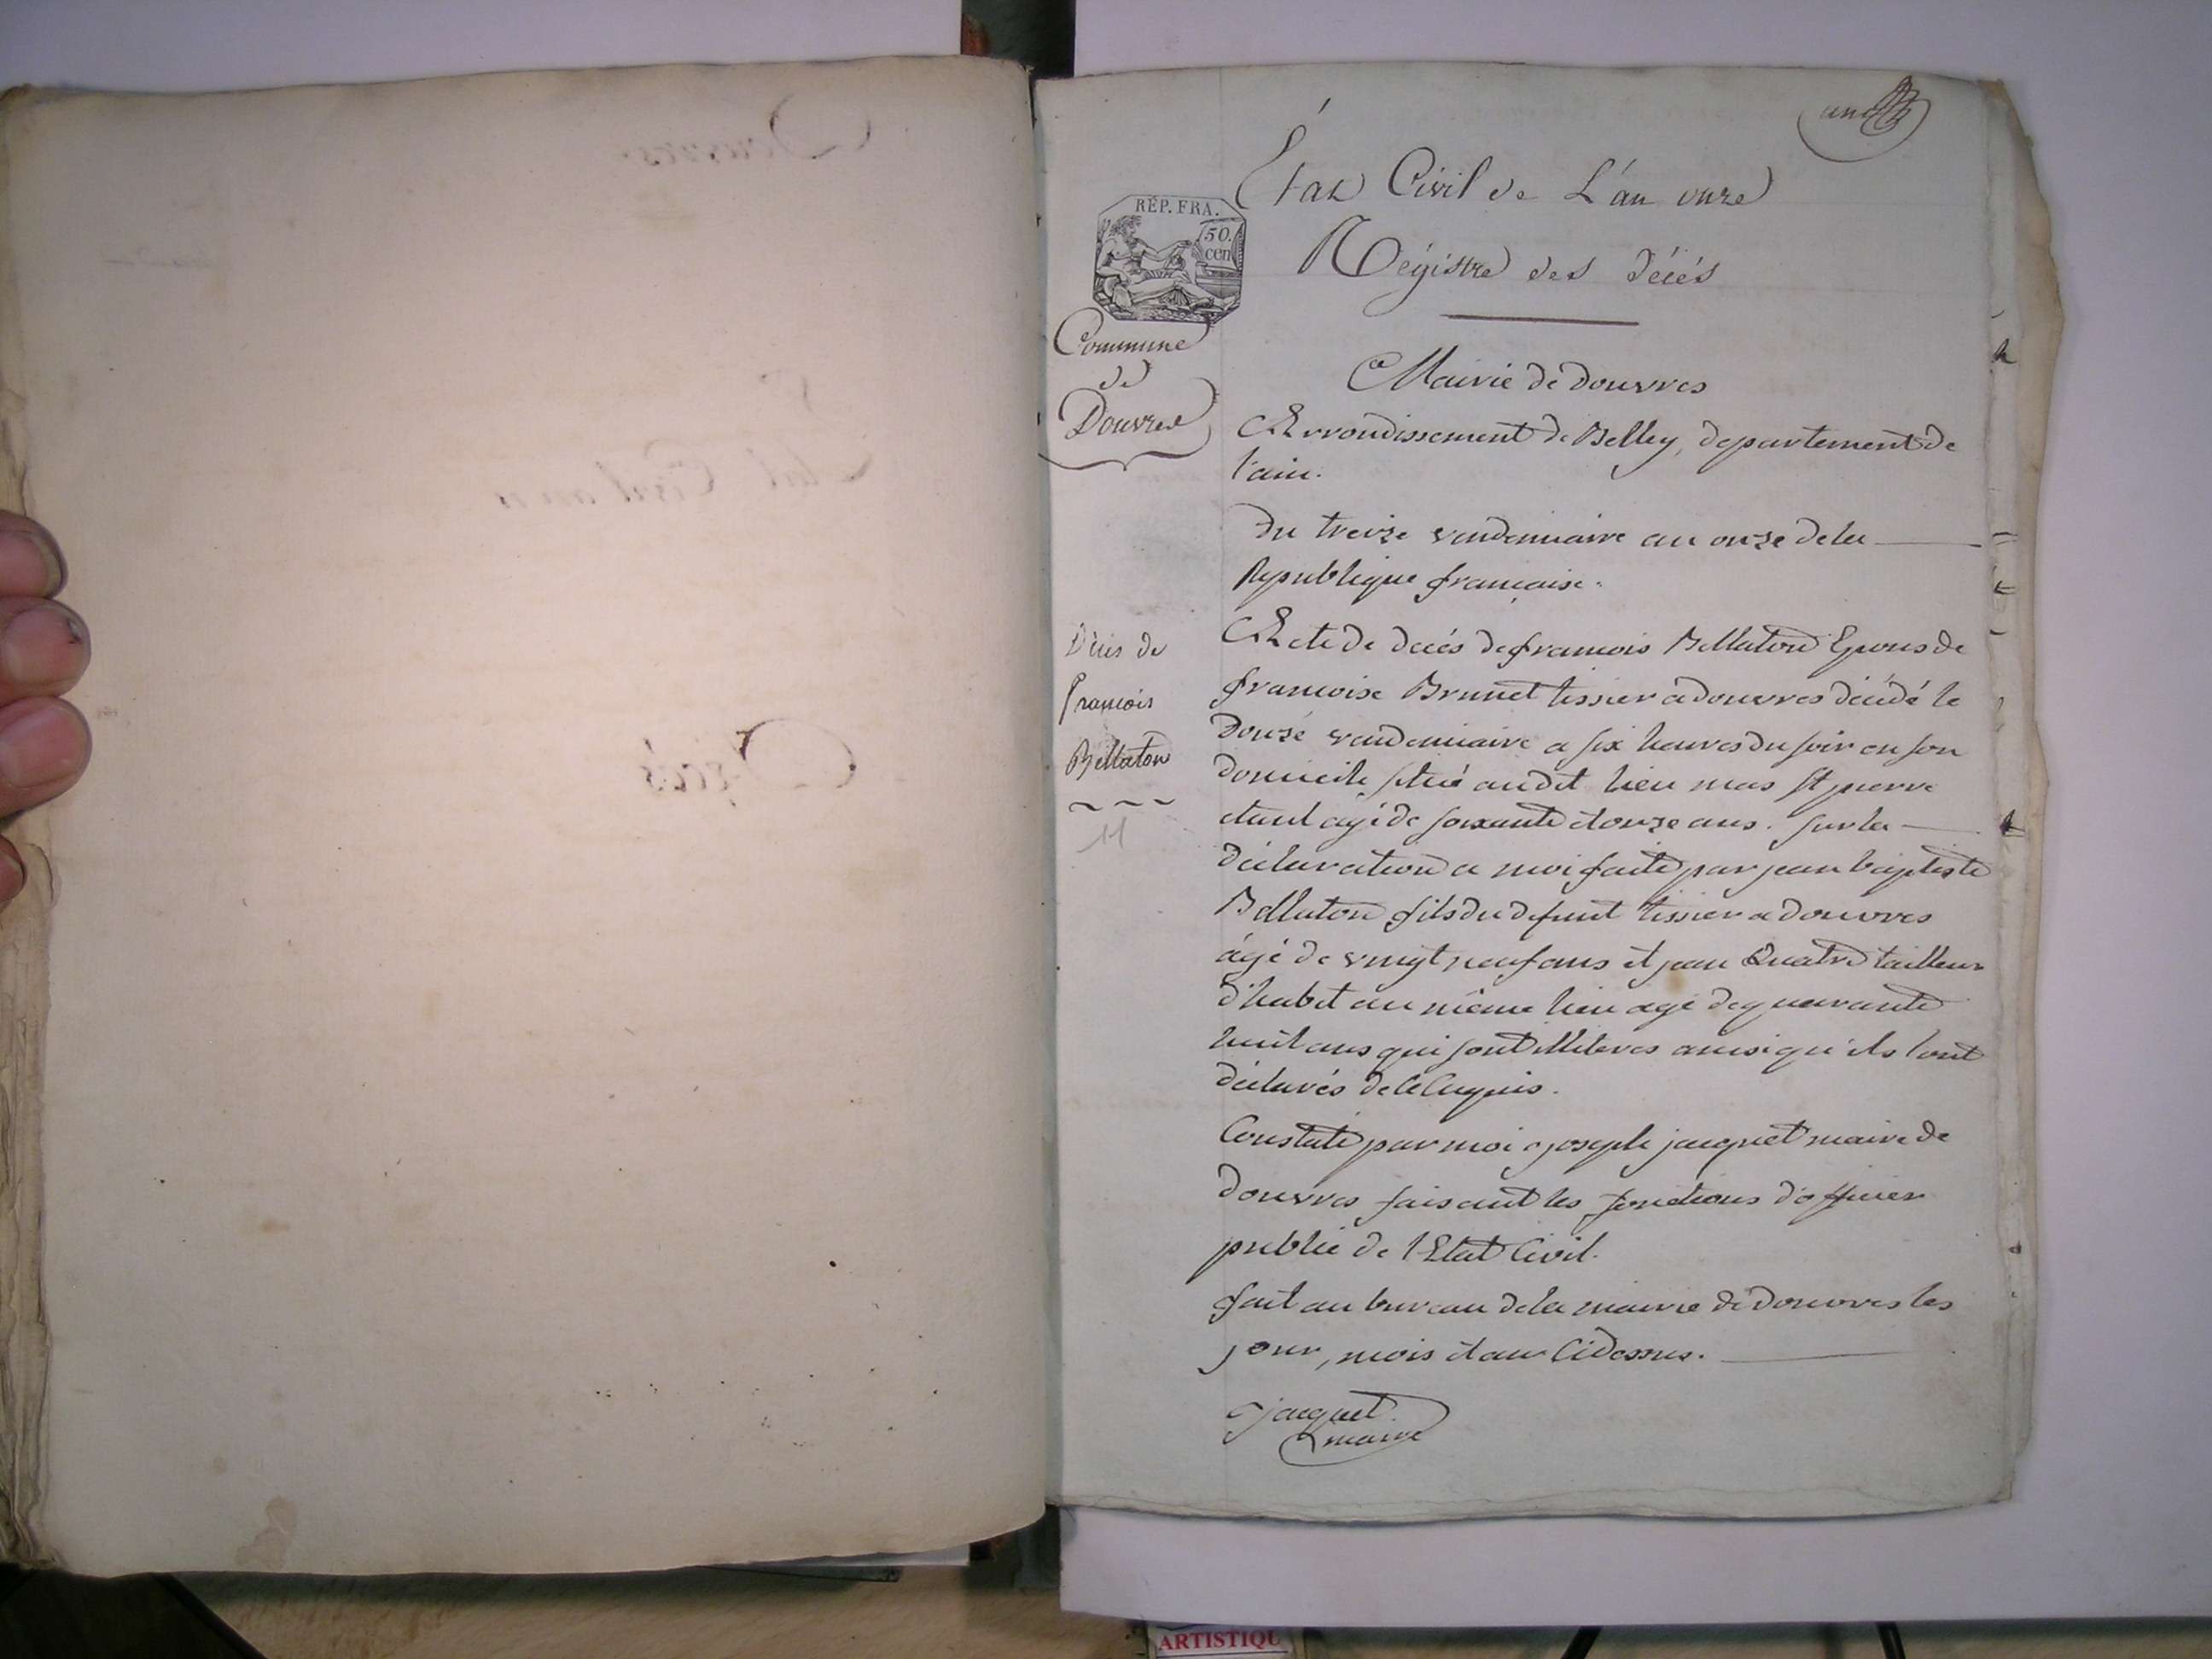 État Civil de L'an onze
Régistre des décés
RÉP. FRA.
50.
cen
Commune
de
Douvres
Mairie de douvres
Arrondissement de Belley, departement de
l'ain.
Du treize vendemiaire an onze de la
Republique française.
Décès de
francois
Bellaton
11
Acte de decés de francois Bellaton Epous de
francoise Brunet tissier a douvres décédé le
douze vendemiaire a six heures du soir en son
domicile situé audit lieu mas St pierre
etant agé de soixante et onze ans. Sur la
déclaration a moi faite par jean baptiste
Bellaton fils du defunt tissier a douvres
âgé de vingt neuf ans et jean Quatre tailleur
d'habit au même lieu agé de quarante
huit ans qui sont illiteres ainsi qu'ils l'ont
déclarés de ce enquis.
Constaté par moi joseph jacquet maire de
douvres faisant les fonctions d'officier
public de l'Etat Civil.
fait au bureau de la mairie de douvres les
jour, mois et an Cidessus.
jacquet
maire
Douvres
Etat Civil an 11
Décés
ARTISTIQU